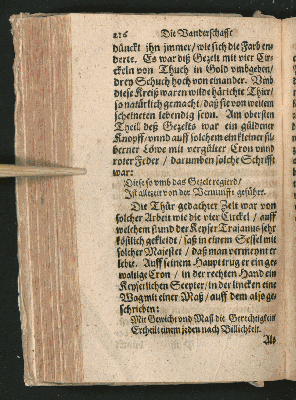 216 Die Wanderschafft
dünckt ihn jmmer / wie sich die Farb en-
derte. Es war diß Gezelt mit vier Cir-
ckeln von Thuch in Gold vmbgeben /
drey Schuch hoch von einander. Vmb
diese Kreiß waren wilde härichte Thier /
so natürlich gemacht / daß sie von weitem
scheineten lebendig seyn. Am obersten
Theil deß Gezelts war ein güldener
Knopff / vnnd auff solchem ein kleiner sil-
berner Löwe mit vergülter Cron vnnd
roter Feder / darumben solche Schrifft
war:
Die se so vmb das Gezelt regierd /
Ist allezeit von der Vernunfft geführt.
Die Thür gedachter Zelt war von
solcher Arbeit wie die vier Circkel / auff
welchem stund der Keyser Trajanus sehr
köstlich gekleidt / saß in einem Sessel mit
solcher Majestet / daß man vermeynt er
lebte. Auff seinem Haupt trug er ein ge-
waltige Cron / in der rechten Hand ein
Keyserlichen Scepter / in der lincken eine
Wag mit einer Maß / auff dem also ge-
schrieben:
Mit Gewicht vnd Maß die Gerechtigkeit
Ertheilt einem jeden nach Billichkeit.